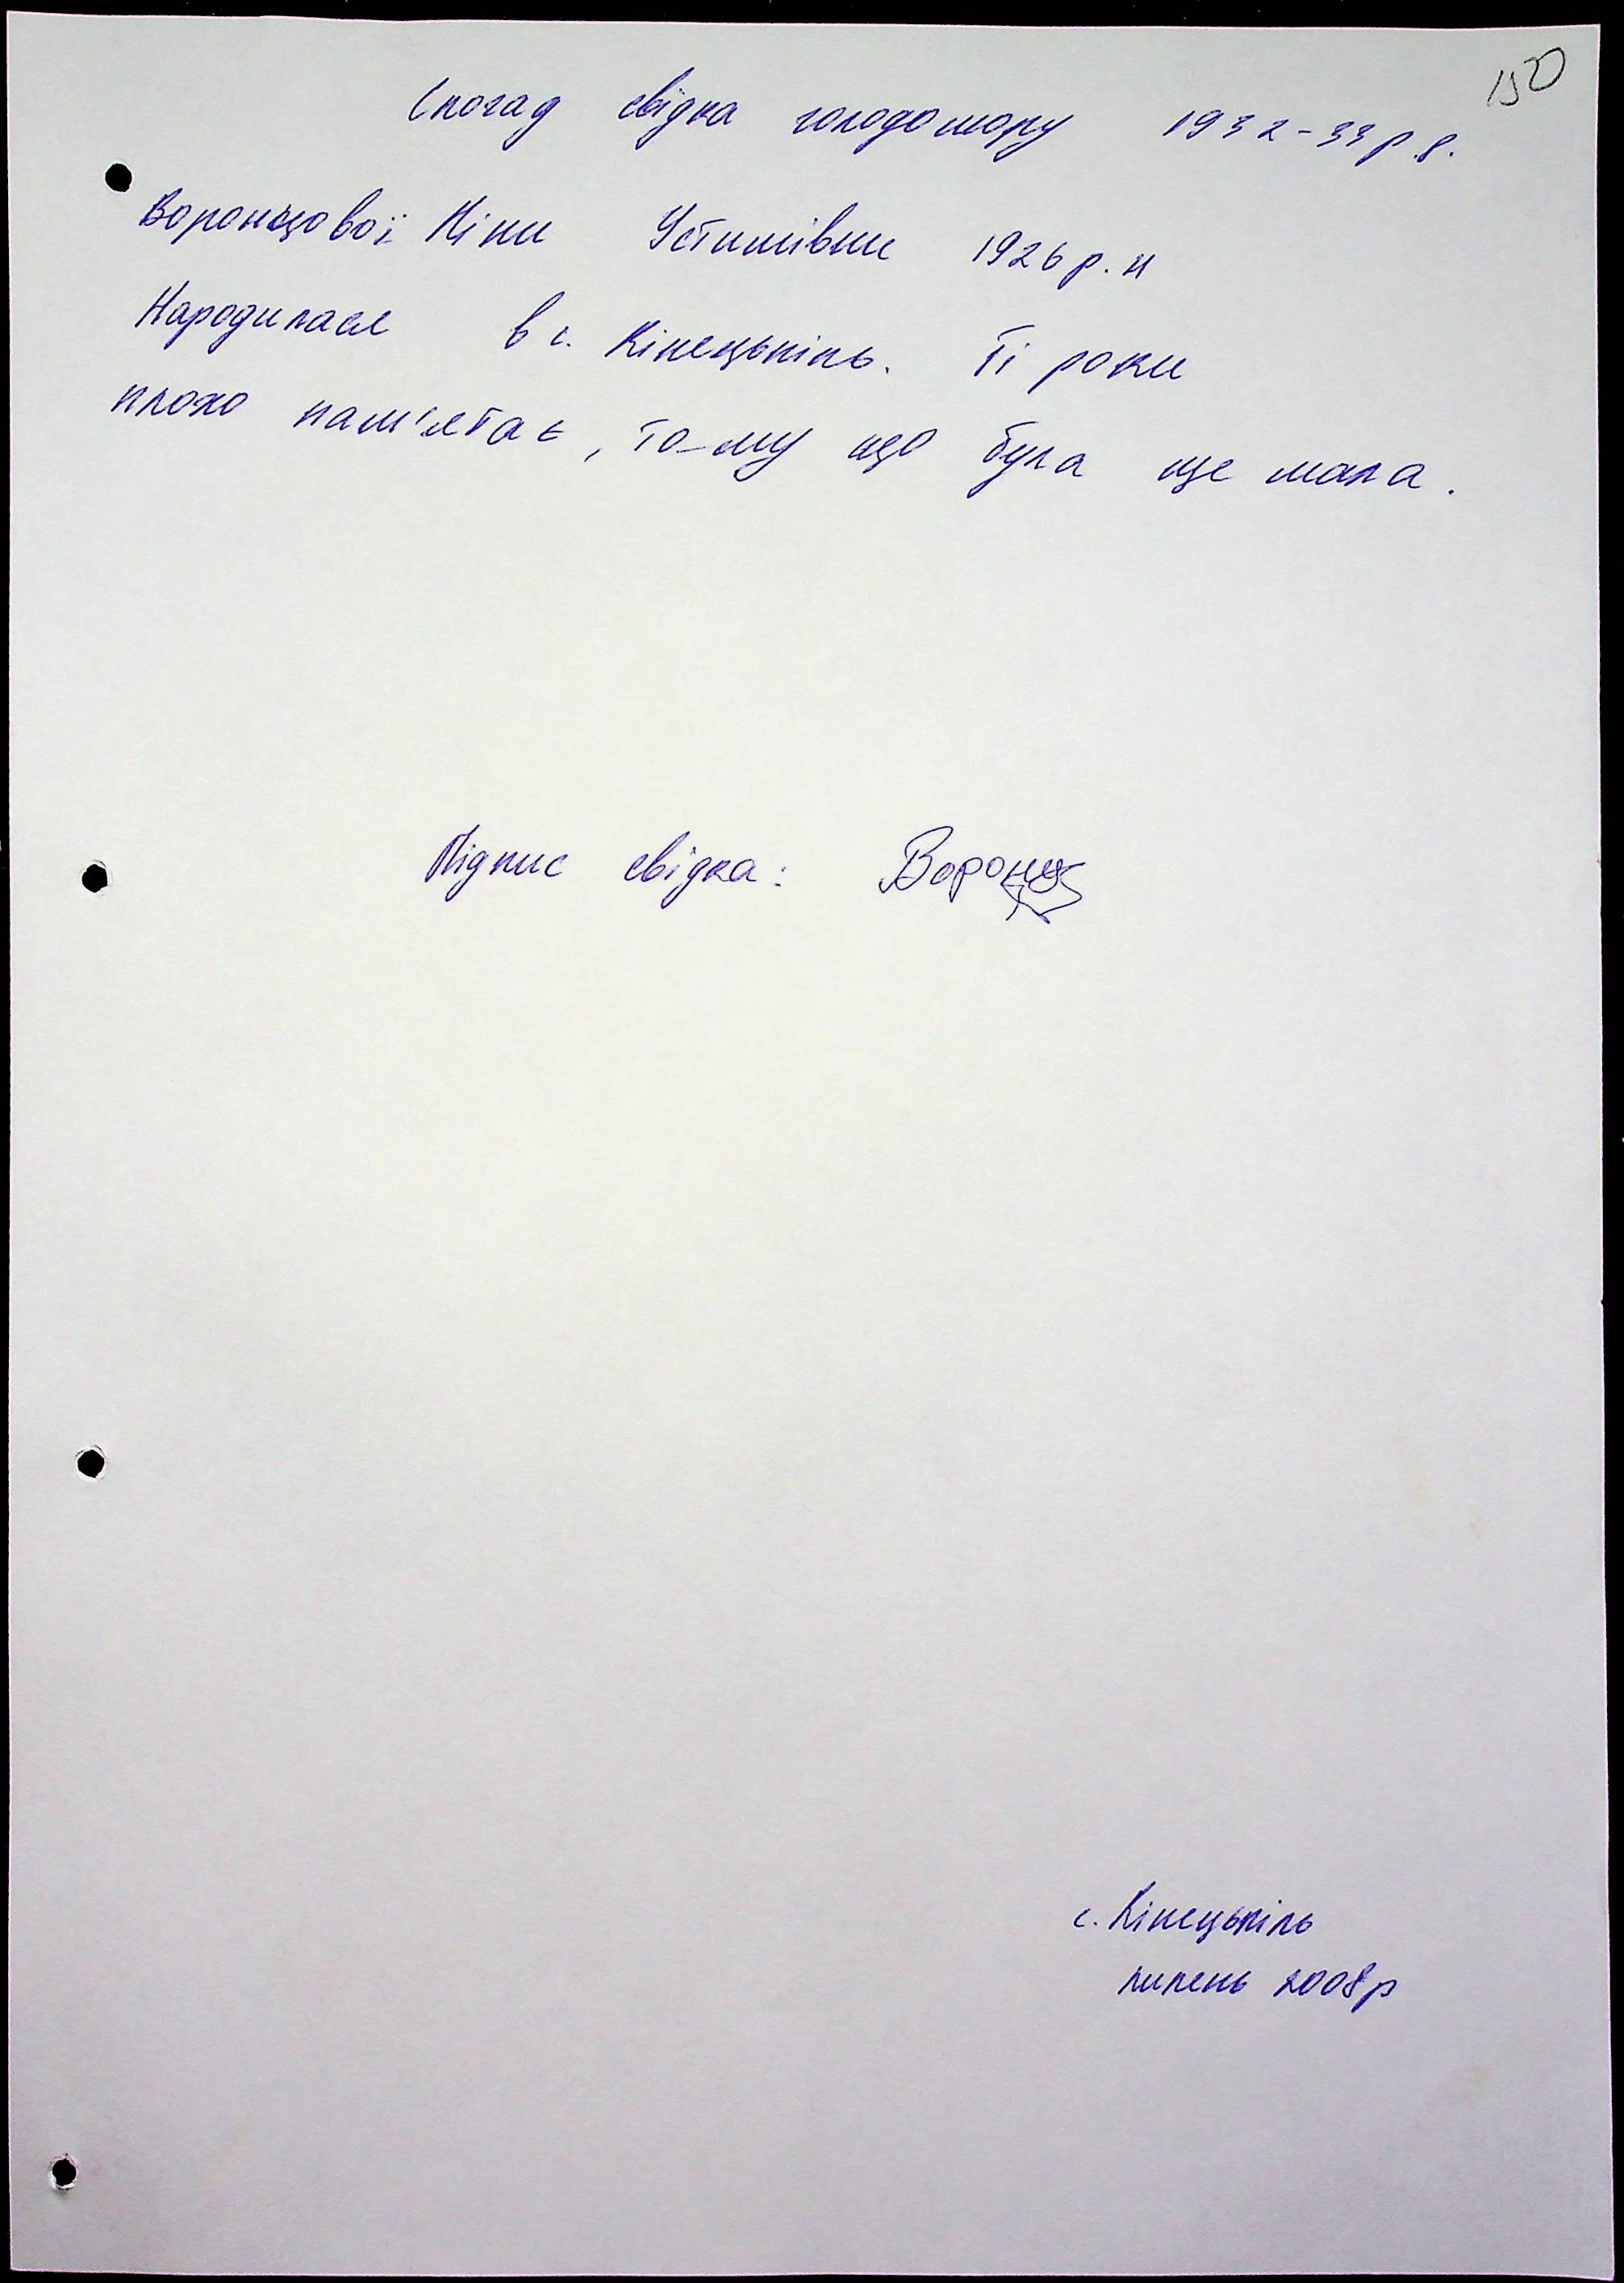 150
Спогад свідка голодомору 1932-33р.р.
Воронцової Ніни Устимівни 1926р.н
Народилася в с. Кінецьпіль. Ті роки
плохо пам'ятає, то-му що була ще мала.
Підпис свідка: Воронц
с. Кінецьпіль
липень 2008р